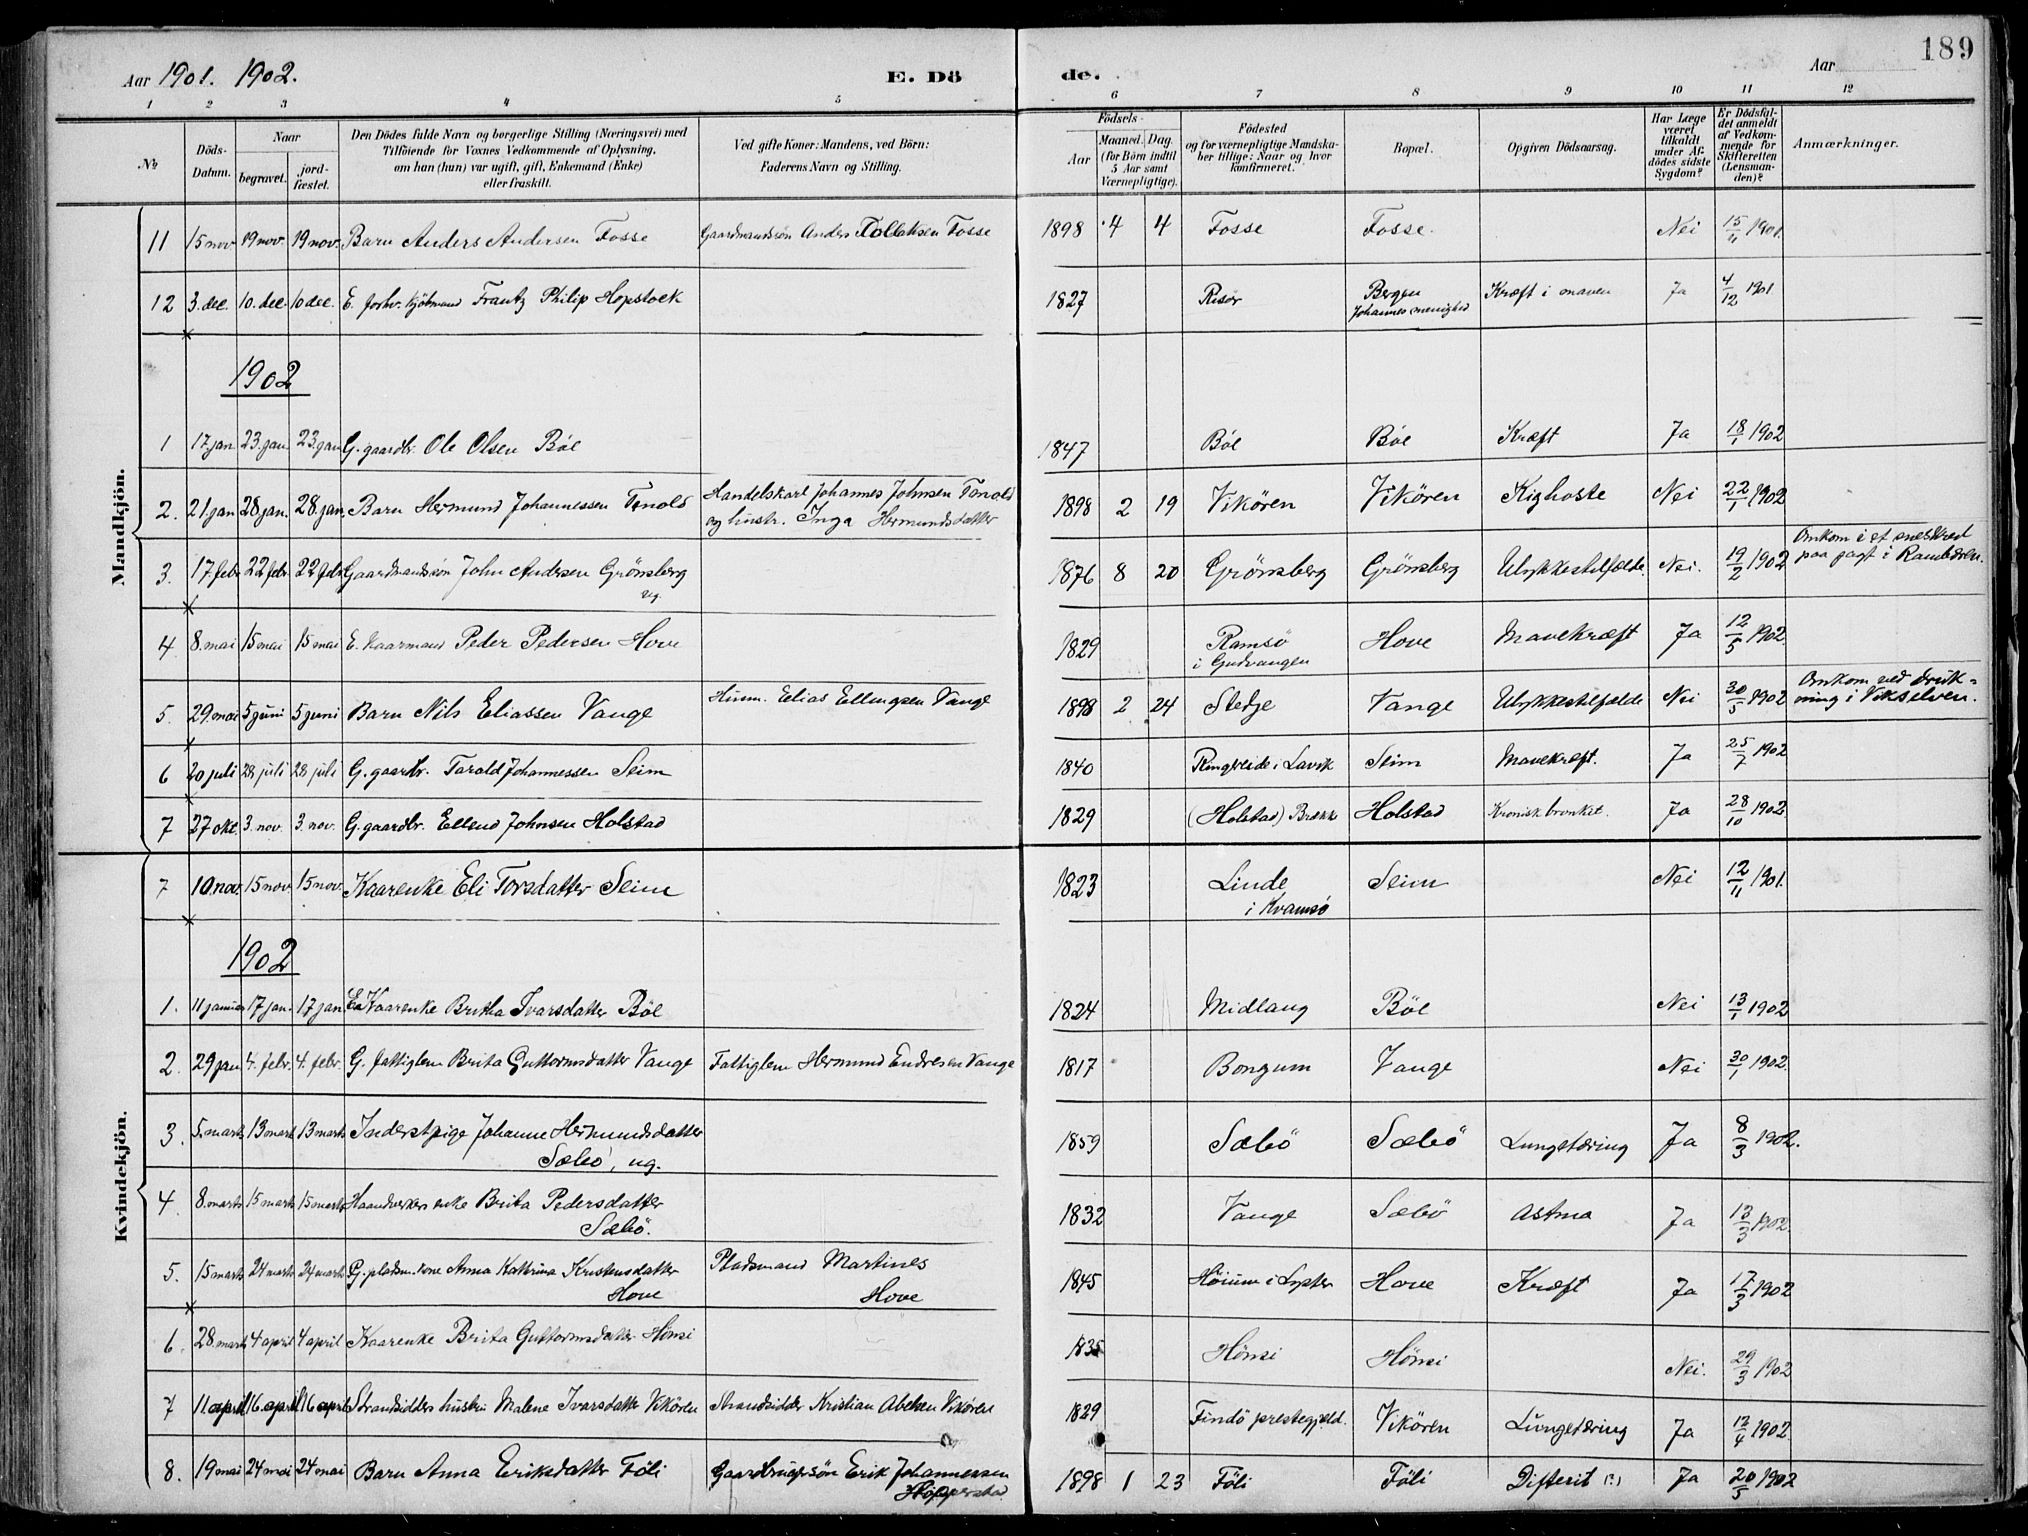 189
Aar 1901. 1902.
E. Döde.
Aar
1 2 3 4 5 6 7 8 9 10 11 12
№
Döds-Datum.
Naar
begravet.
jord-fæstet.
Den Dödes fulde Navn og borgerlige Stilling (Næringsvei) med
Tilföiende for Voxnes Vedkommende af Oplysning.
om han (hun) var ugift, gift, Enkemand (Enke)
eller fraskilt.
Ved gifte Koner: Mandens, ved Börn:
Faderens Navn og Stilling.
Födsels-
Aar
Maaned. Dag.
(for Börn indtil
5 Aar samt
Værnepligtige).
Födested
og for værnepligtige Mandska-
ber tillige: Naar og hvor
konfirmeret.
Bopæl.
Opgiven Dödsaarsag.
Har Læge
været
tilkaldt
under Af-
dödes sidste
Sygdom?
Er Dödsfal-
det anmeldt
af Vedkom-
mende for
Skifteretten
(Lensman-
den)?
Anmærkninger.
Mandkjön.
11 15 nov 19 nov. 19 nov. Barn Anders Andersen Fosse Gaardmandssön Anders Tollaksen Fosse 1898 4 4 Fosse Fosse. Nei 15/11 1901.
12 3. dec. 10. dec. 10 dec. E. forhv. kjöbmand Frantz Philip Hopstock 1827 Risör Bergen Johannes menighed Kræft i maven Ja 4/12 1901
1902
1 17. jan 23. jan. 23. jan G. gaardbr. Ole Olsen Böe 1847 Böe Böe Kræft Ja 18/1 1902
2. 21. jan 28 jan. 28. jan. Barn Hermund Johannessen Tenold Handelskarl Johannes Johnsen Tenold
og hustr. Inga Hermundsdatter 1898 2 19 Vikören Vikören Kighoste Nei 22/1 1902
3. 17. febr 22 febr 22 febr Gaardmandssön John Andersen Grönsberg
ug. 1876 8 20 Grönsberg Grönsberg Ulykkestilfælde. Nei. 19/2 1902 Omkom i et sneskred
paa jagt i
4 8. mai 15 mai 15 mai E. kaarmand Peder Pedersen Hove 1829 Ramsö
i Gudvangen Hove Mavekræft Ja 12/5 1902.
5. 29. mai 5 juni 5 juni Barn Nils Eliassen Vange Husm. Elias Ellingsen Vange 1898 2 24 Stedje Vange Ulykkestilfælde Nei 30/5 1902 Omkom ved druk-
ning i Vikselven.
6 20 juli 28 juli 28 juli G. gaardbr. Tarald Johannessen Seim 1840 Ringereide i Lavik Seim Mavekræft. Ja 25/7 1902
7 27 okt. 3. nov. 3. nov. G. gaardbr. Ellend Johnsen Holstad 1829 (Holstad) Brekke Holstad Kronisk bronket. Ja 28/10 1902
Kvindekjön.
7 10 nov. 15 nov. 15 nov. Kaarenke Eli Torsdatter Seim 1823 Linde
i Kvamsö Seim Nei 12/11 1901.
1902
1. 11 januar 17 jan. 17 jan. E. Kaarenke Britha Ivarsdatter Böe 1824 Midlang Böe Nei 13/1 1902
2. 29 jan 4. febr. 4. febr. G. fattiglem Brita Guttormsdatter Vange Fattiglem Hermund Endresen Vange 1817 Bongum Vange Nei 30/1 1902.
3. 5. marts 13 marts 13 marts Inderstpige Johanne Hermundsdatter
Sæbö, ug. 1859 Sæbö Sæbö Lungetæring Ja 8/3 1902.
4. 8. marts 15 marts 15 marts Haandverker enke Brita Pedersdatter
Sæbö. 1832 Vange Sæbö Astma Ja 13/3 1902.
5. 15 marts 24 marts 24 marts G. pladsm. kone Anna Kathrina Kristensdatter
Hove Pladsmand Martines
Hove 1845 Höium i Lyster Hove Kræft Ja 17/3 1902
6. 28 marts 4 april 4 april Kaarenke Brita Guttormsdatter Hönsi 1835 Hönsi Hönsi Nei. 29/3 1902
7 11. april 16. april 16 april Strandsidder hustru Malene Ivarsdatter Vikören Strandsidder Kristian Abelsen Vikören 1829 Findö prestegjeld. Vikören Lungetæring Ja 12/4 1902
8. 19 mai 24 mai 24 mai Barn Anna Eriksdatter Föli Gaardbrugersön Erik Johannessen
Hopperstad 1898 1 23 Föli Föli Difterit (?) Ja 20/5 1902